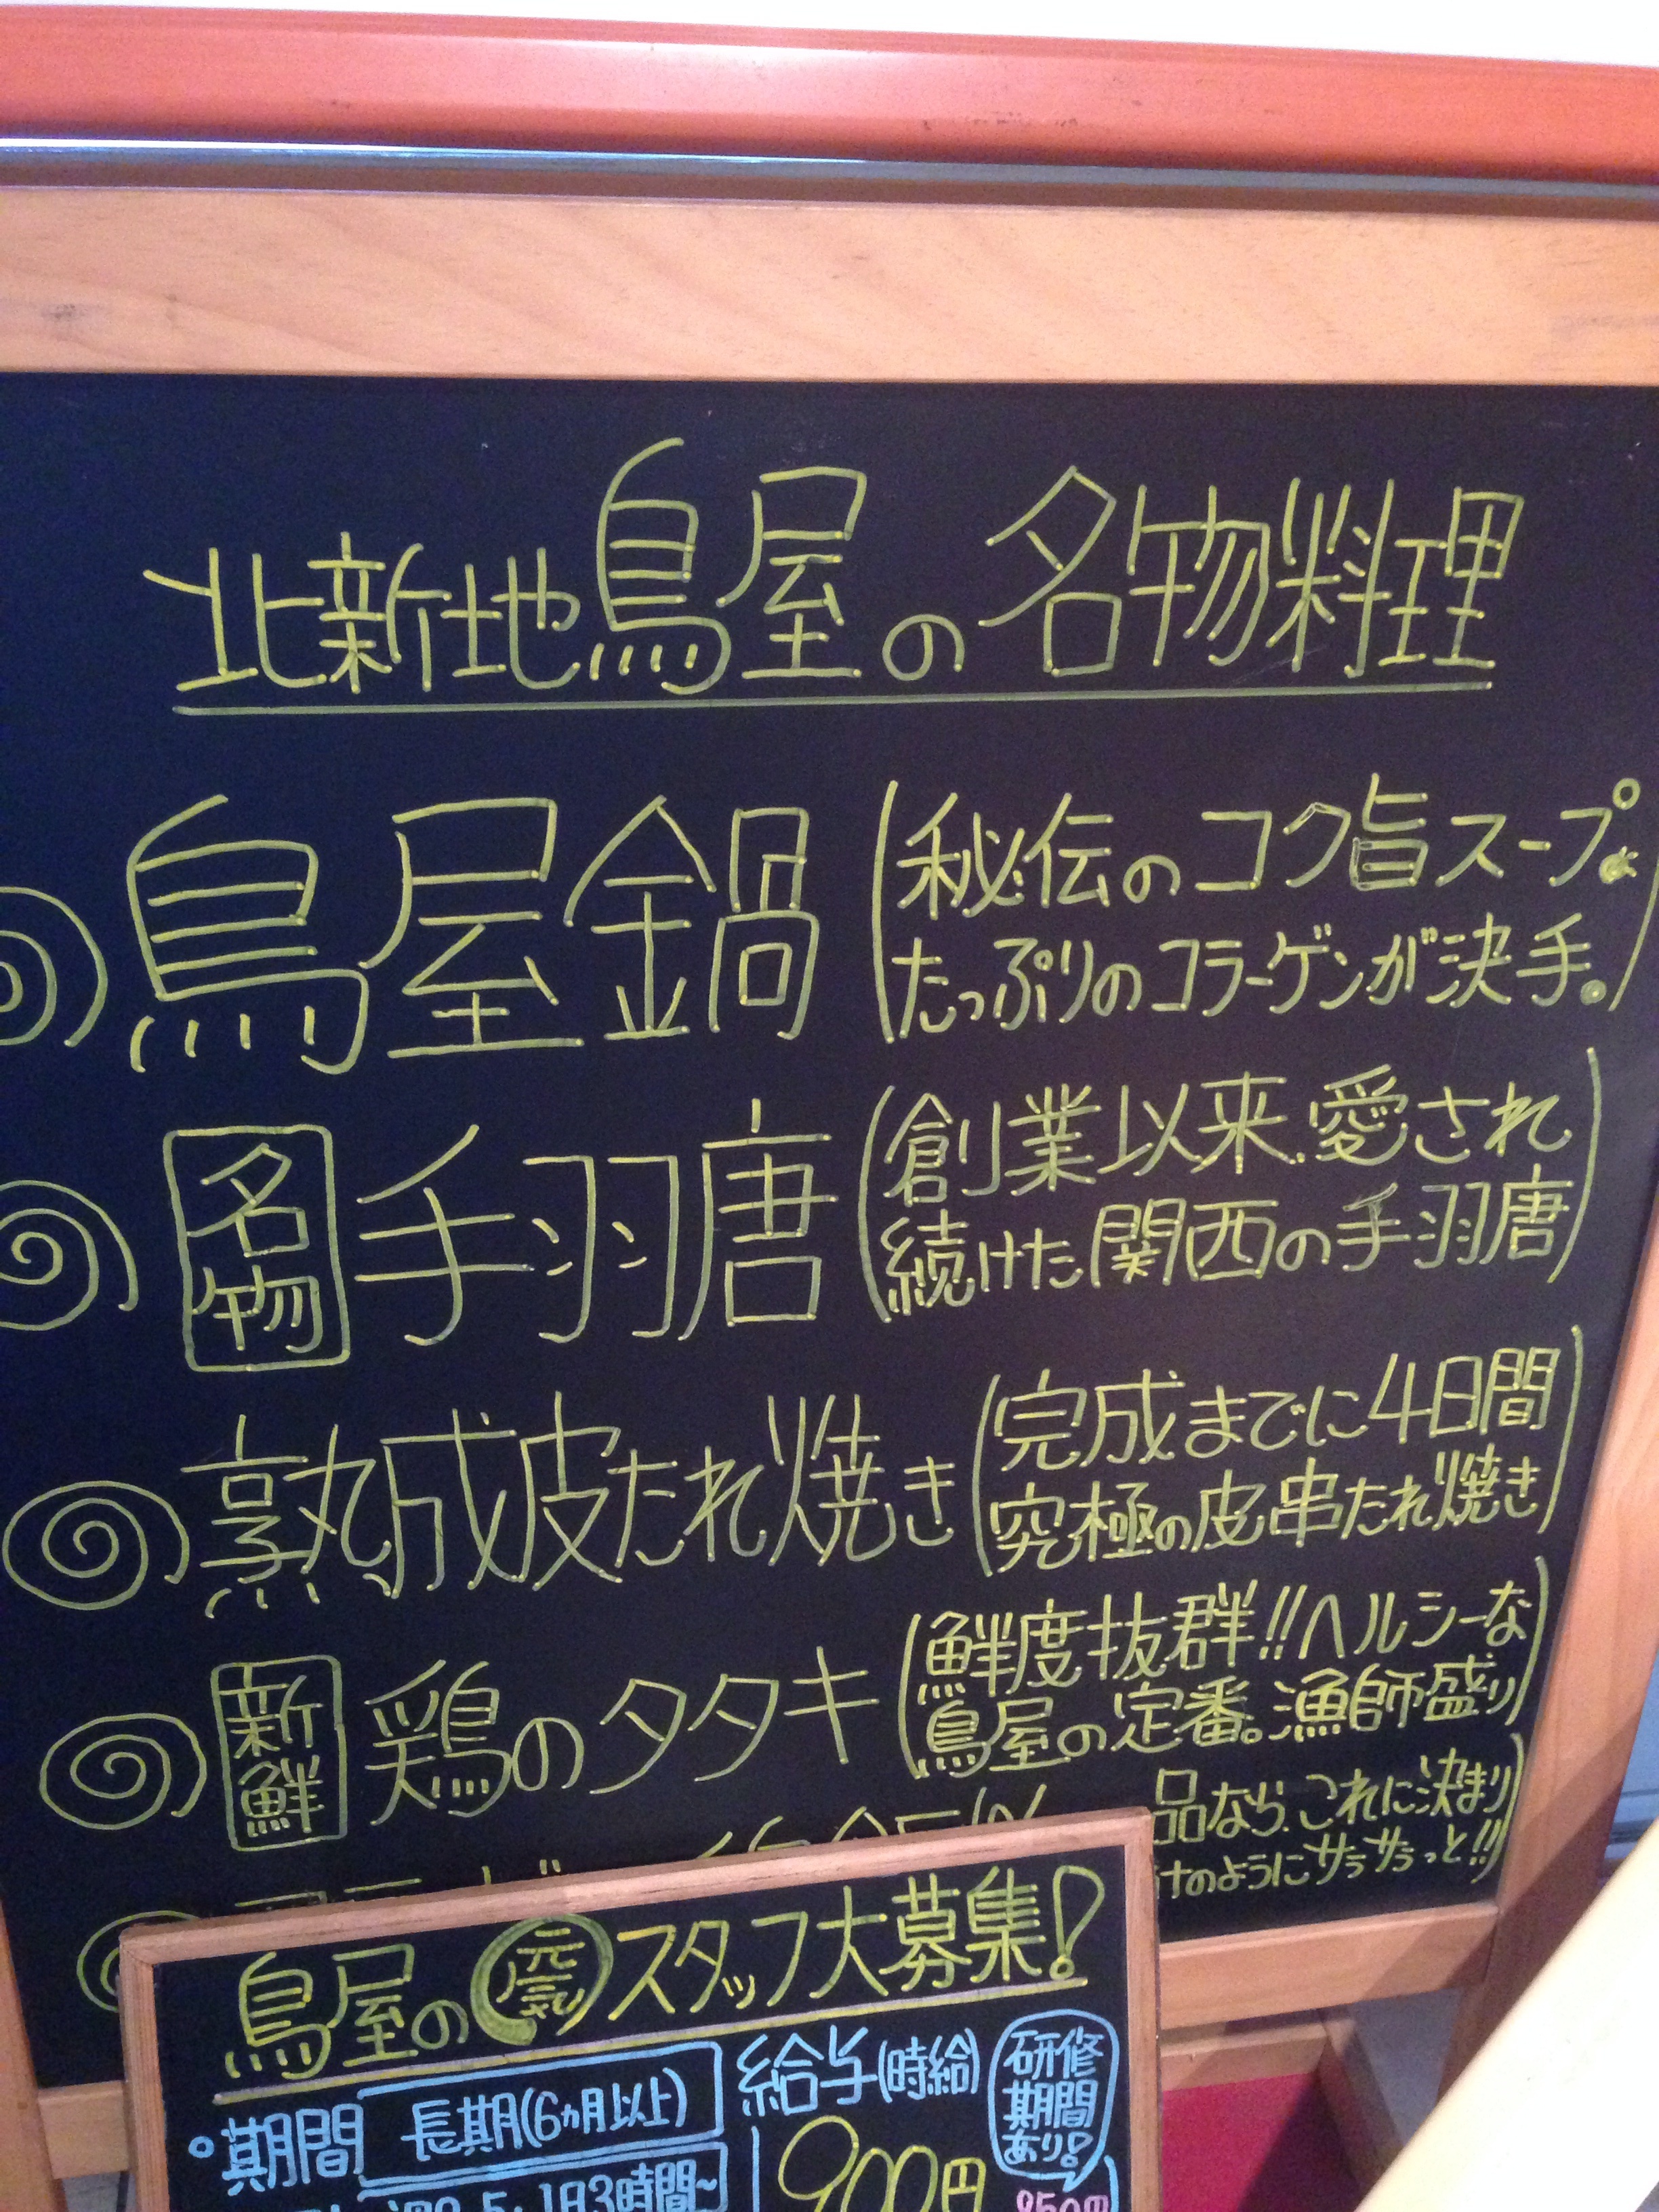 北新地鳥屋の名物料理
鳥屋鍋
(秘伝のコク旨スープと
たっぷりのコラーゲンが決手。)
名物 手羽唐
(創業以来、愛され
続けた関西の手羽唐)
熟成皮たれ焼き
(完成までに4日間
究極の皮串たれ焼き)
新鮮 鶏のタタキ
(鮮度抜群!!ヘルシーな
鳥屋の定番。漁師盛り)
品なら、これに決まり
けのようにサラサラっと!!)
鳥屋の元気スタッフ大募集!
期間 長期(6ヵ月以上)
1日3時間~
給与(時給)
900円
研修
期間
あり!
850円